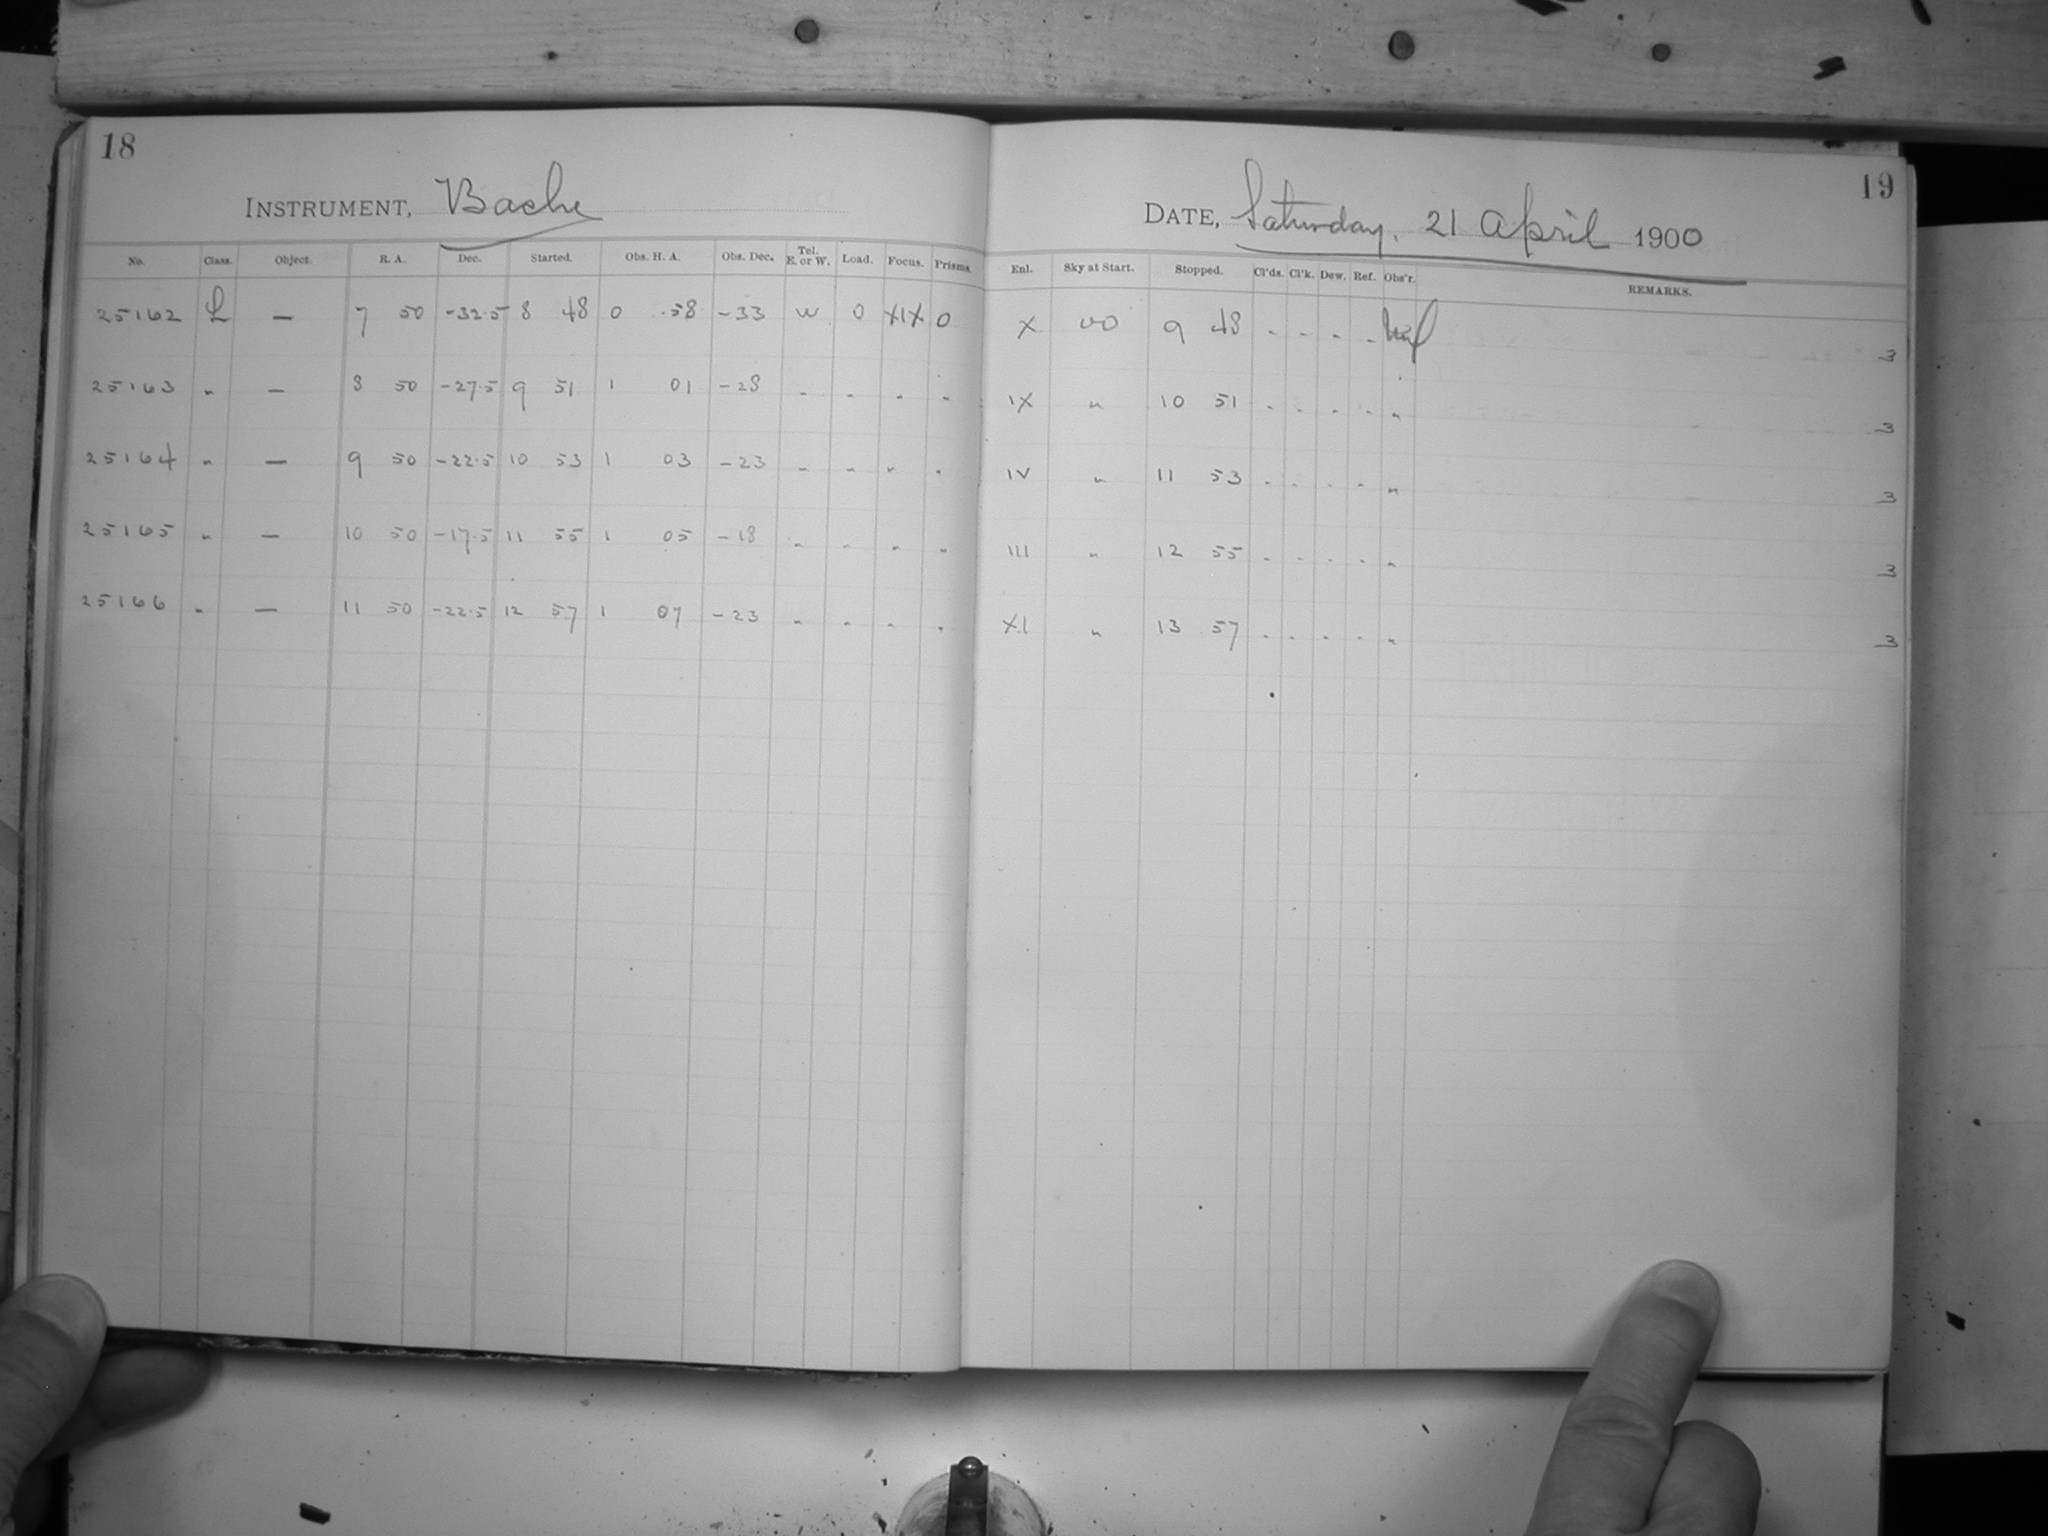 18
INSTRUMENT, Bache
No. Class. Object. R. A. Dec. Started. Obs. H. A. Obs. Dec. Tel. E. or W. Load. Focus. Prisms.
25162 L — 7 50 -32.5 8 48 0 58 -33 W 0 XIX 0
25163 " — 8 50 -27.5 9 51 1 01 -28 " " " "
25164 " — 9 50 -22.5 10 53 1 03 -23 " " " "
25165 " — 10 50 -17.5 11 55 1 05 -18 " " " "
25166 " — 11 50 -22.5 12 57 1 07 -23 " " " "
19
DATE, Saturday, 21 April 1900
Enl. Sky at Start. Stopped. Cl'ds. Cl'k. Dew. Ref. Obs'r. REMARKS.
X 00 9 48 - - - - 3
IX " 10 51 - - - - " 3
IV " 11 53 - - - - " 3
III " 12 55 - - - - " 3
XI " 13 57 - - - - " 3